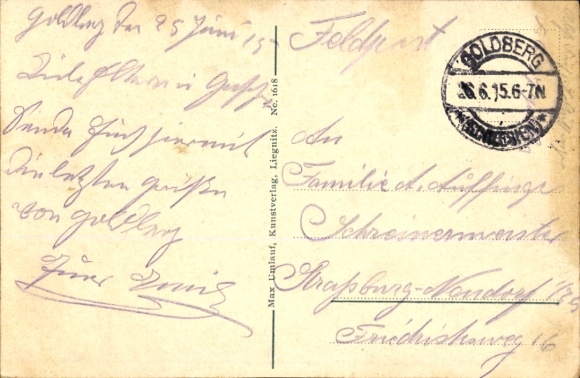 Goldberg den 25 Juni 15
Liebe Eltern u. Geschw.
Sende Euch hiermit
die letzten Grüße
von Goldberg
Euer Emil
Max Umlauf, Kunstverlag, Liegnitz. No. 1618
Feldpost
GOLDBERG
26.6.15.6-7N
*(SCHLESIEN)*
An
Familie A. Auffinger
Schreinermeister
Straßburg-Neudorf i/Els
Friedrichsweg 16